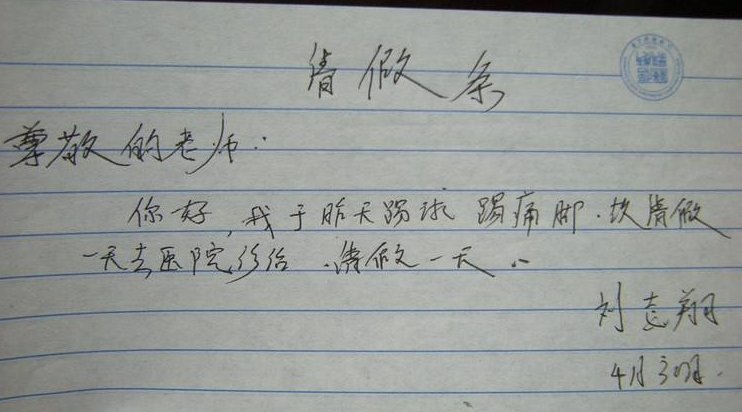 请假条
尊敬的老师:
你好,我于昨天踢球踢痛脚.故请假
一天去医院诊治.请假一天..
刘志翔
4月30日.